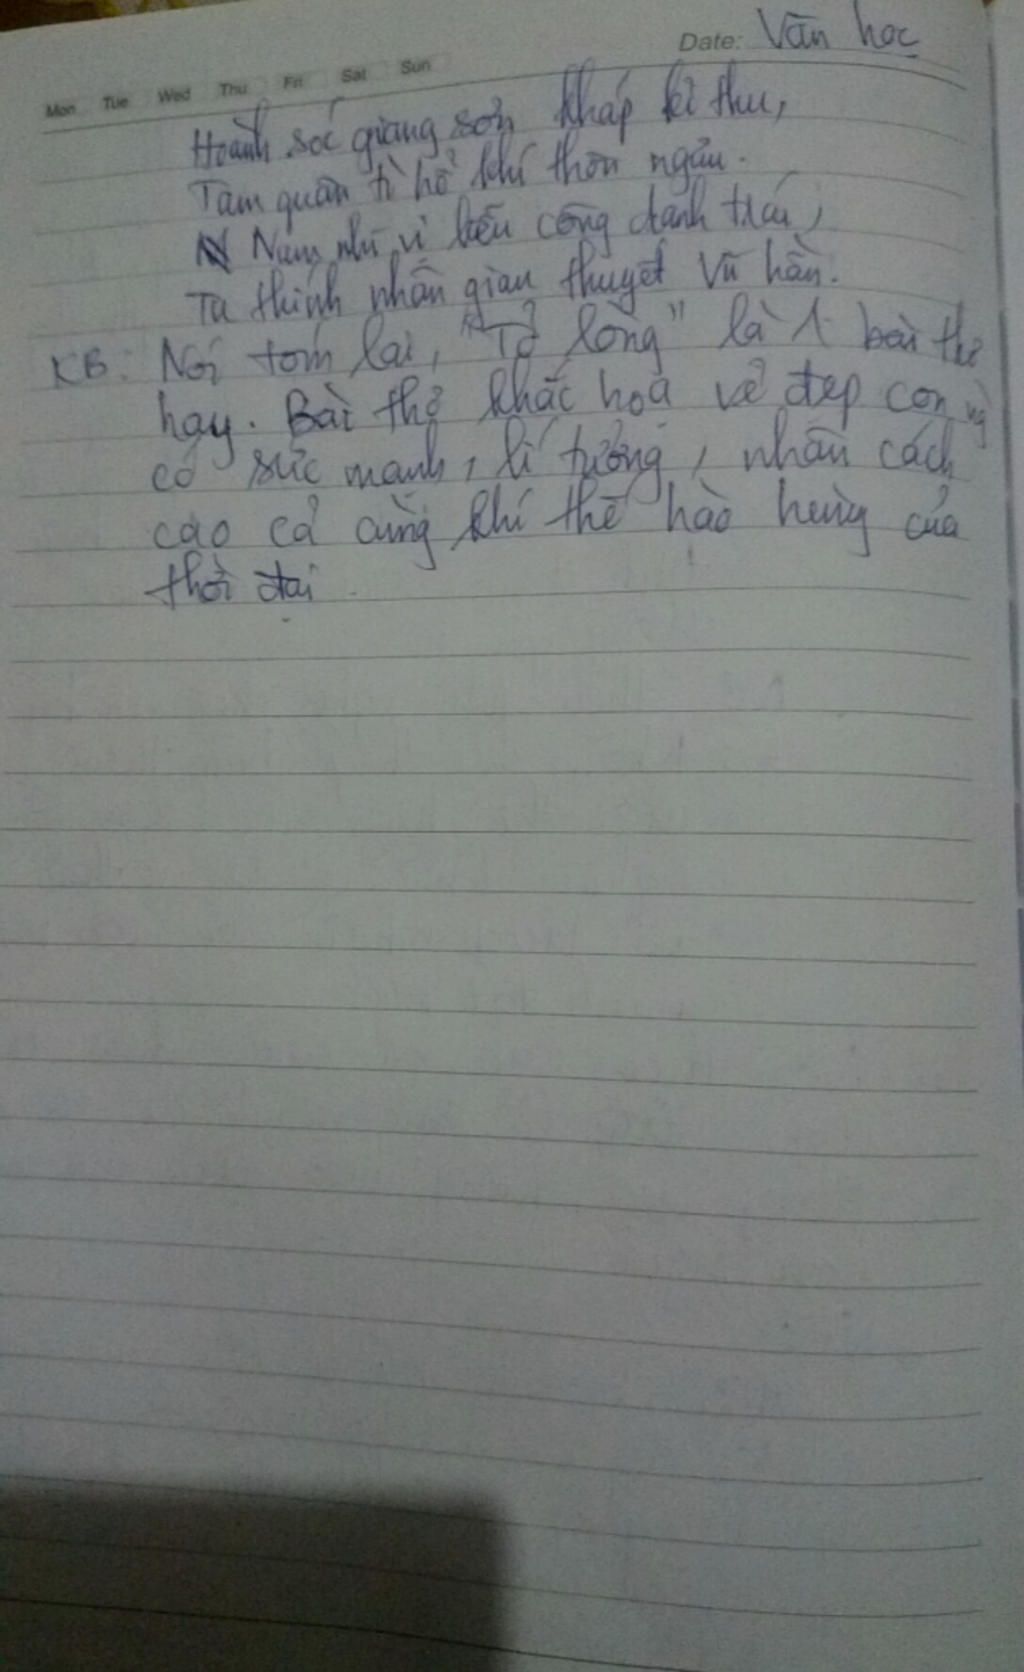 Date: Văn học
Mon Tue Wed Thu Fri Sat Sun
Hoành sóc giang sơn kháp kỉ thu,
Tam quân tì hổ khí thôn ngưu.
Nam nhi vị liễu công danh trái,
Tu thính nhân gian thuyết Vũ hầu.
KB: Nói tóm lại, "Tỏ lòng" là 1 bài thơ
hay. Bài thơ khắc hoạ vẻ đẹp con ng
có sức mạnh, lí tưởng, nhân cách
cao cả cùng khí thế hào hùng của
thời đại.